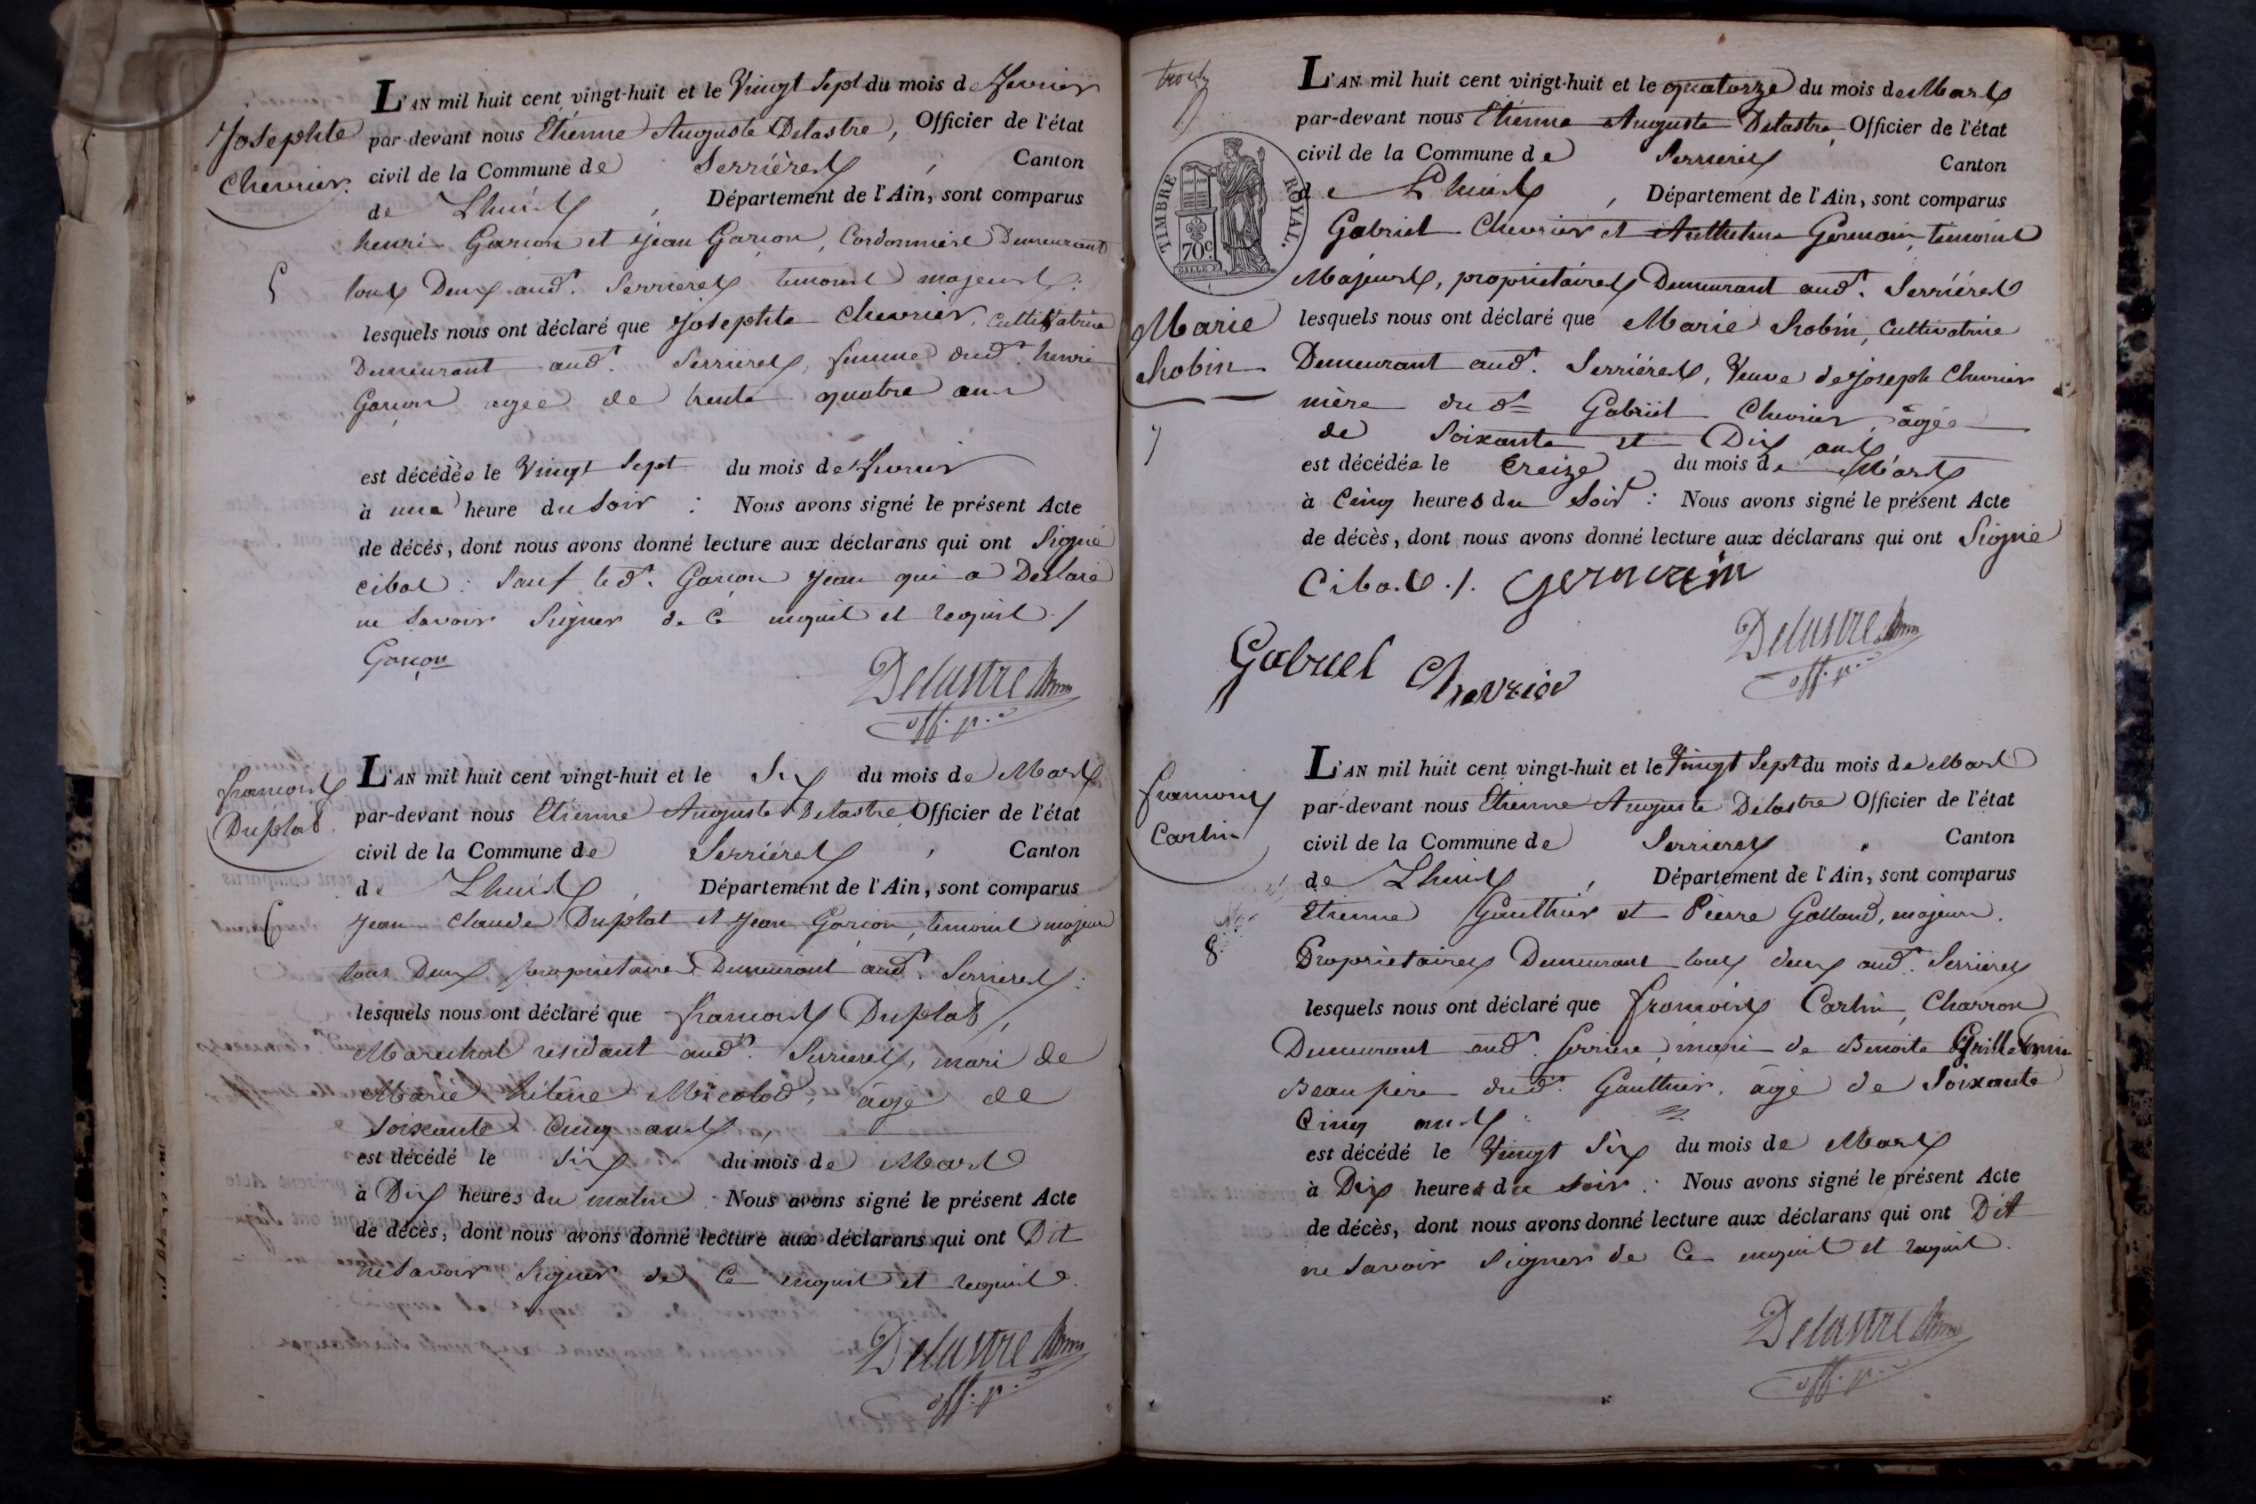 Josephte
Chevrier.
5
L'AN mil huit cent vingt-huit et le Vingt Sept du mois de fevrier
par-devant nous Etienne Auguste Delastre, Officier de l'état
civil de la Commune de Serrières, Canton
de Lhuis, Département de l'Ain, sont comparus
henri Garçon et jean Garçon, Cordonniers Demeurant
tous Deux aud.t Serrieres temoins majeurs:
lesquels nous ont déclaré que Josephte Chevrier, cultivatrice
Demeurant aud.t Serrieres, femme dud.t henri
Garçon agee de trente quatre ans
est décédée le Vingt Sept du mois de fevrier
à une heure du Soir : Nous avons signé le présent Acte
de décés, dont nous avons donné lecture aux déclarans qui ont Signé
cibas : Sauf led.t Garçon Jean qui a Declaré
ne Savoir Signer de Ce enquis et requis ./
Garçon
Delastre
off. p.
francois
Duplat
6
L'AN mil huit cent vingt-huit et le Six du mois de Mars
par-devant nous Etienne Auguste Delastre Officier de l'état
civil de la Commune de Serriéres, Canton
de Lhuis, Département de l'Ain, sont comparus
Jean Claude Duplat et Jean Garçon, temoins majeur
tous Deux proprietaires Demeurant aud.t Serrieres:
lesquels nous ont déclaré que francois Duplat,
Marechal residant aud.t Serrieres, mari de
Marie hélène Micolod, âgé de
Soixante Cinq ans,
est décédé le Six du mois de Mars
à Dix heures du matin : Nous avons signé le présent Acte
de décés, dont nous avons donné lecture aux déclarans qui ont Dit
ne Savoir Signer de Ce enquis et requis.
Delastre
off. p.
TIMBRE ROYAL.
70c
Marie
Robin
7
L'AN mil huit cent vingt-huit et le quatorze du mois de Mars
par-devant nous Etienne Auguste Delastre Officier de l'état
civil de la Commune de Serrieres Canton
de Lhuis, Département de l'Ain, sont comparus
Gabriel Chevrier et Anthelme Germain, temoins
Majeurs, propriétaires Demeurant aud.t Serriéres
lesquels nous ont déclaré que Marie Robin, Cultivatrice
Demeurant aud.t Serriéres, Veuve de Joseph Chevrier
mère du d.t Gabriel Chevrier, âgée
de Soixante et Dix ans
est décédée le treize du mois de Mars
à Cinq heures du Soir : Nous avons signé le présent Acte
de décès, dont nous avons donné lecture aux déclarans qui ont Signé
Cibas ./. germain
Delastre
off. p.
Gabriel Chevrier
francois
Carlin
8
L'AN mil huit cent vingt-huit et le Vingt Sept du mois de Mars
par-devant nous Etienne Auguste Delastre Officier de l'état
civil de la Commune de Serrieres Canton
de Lhuis, Département de l'Ain, sont comparus
Etienne Gauthier et Pierre Galland, majeurs.
Propriétaires Demeurant tous deux aud.t Serriéres
lesquels nous ont déclaré que francois Carlin, Charron
Demeurant aud.t Serriere, mari de Benoite
Beau père dud.t Gauthier, âgé de Soixante
Cinq ans
est décédé le Vingt Six du mois de Mars
à Dix heures du Soir : Nous avons signé le présent Acte
de décès, dont nous avons donné lecture aux déclarans qui ont Dit
ne Savoir Signer de Ce enquis et requis.
Delastre
off. p.